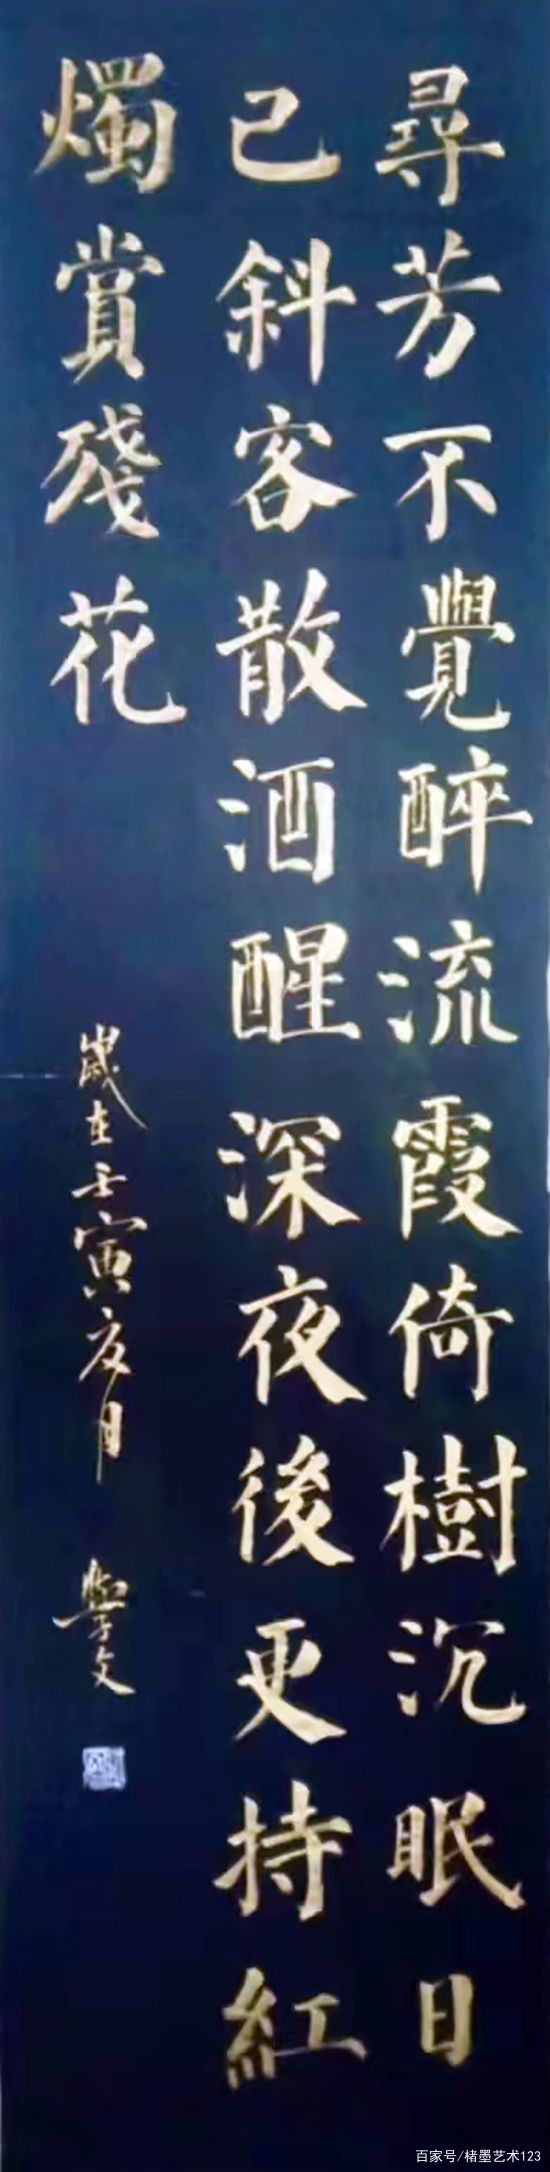 尋芳不覺醉流霞倚樹沉眠日
已斜客散酒醒深夜後更持紅
燭賞殘花
歲在壬寅友月
學文
百家号/楮墨艺术123